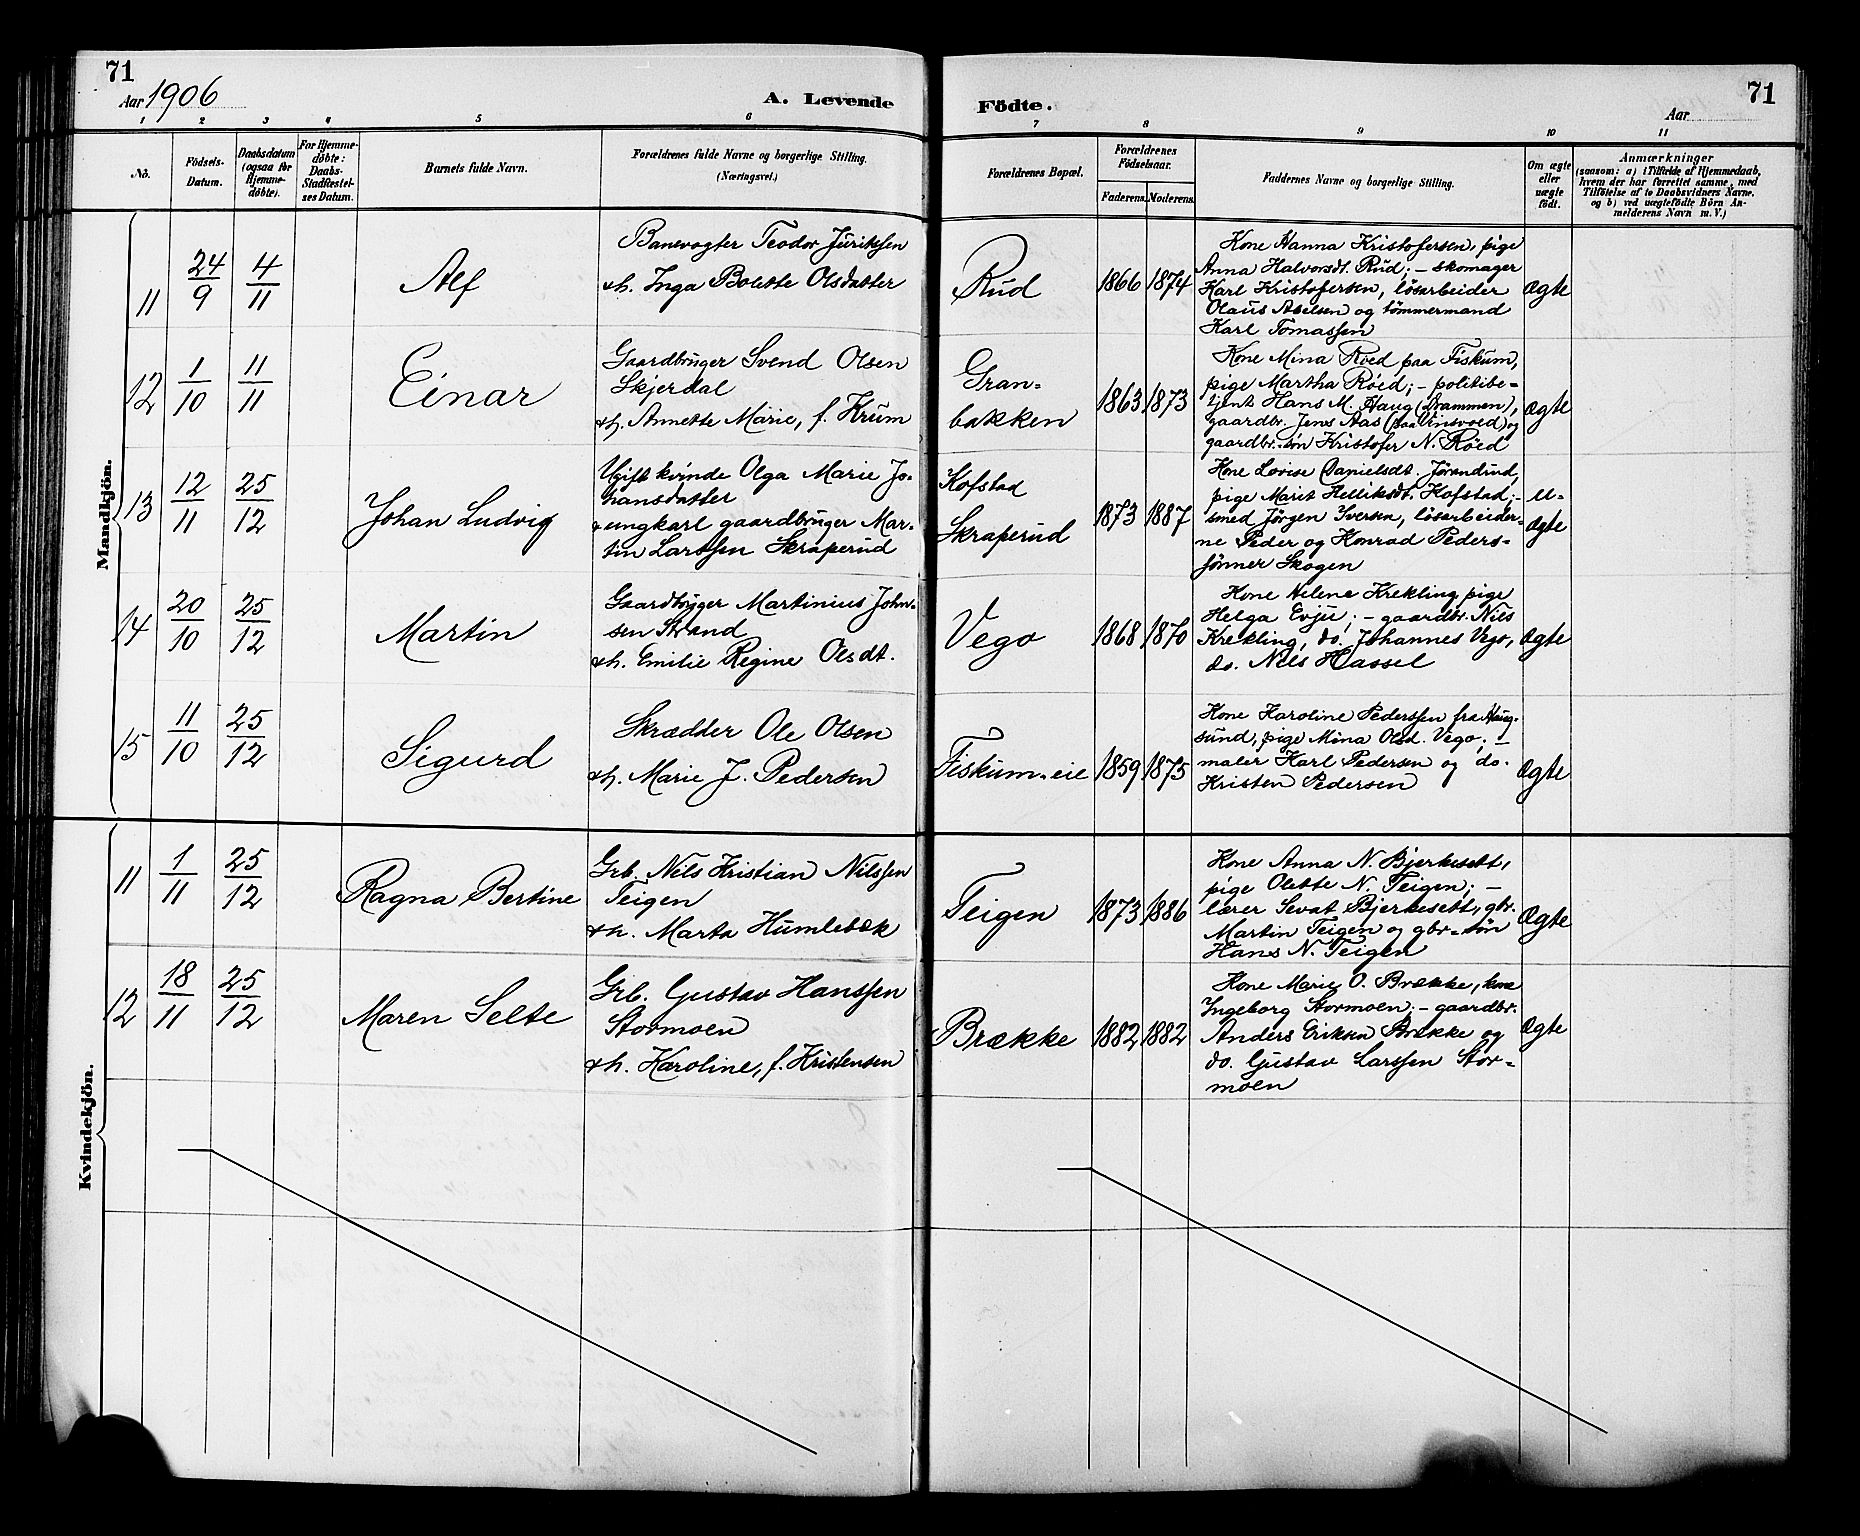 71
Aar 1906
A. Levende
Födte.
Aar
71
1
2
3
4
5
6
7
8
9
10
11
No.
Födsels-
Datum.
Daabsdatum
(ogsaa for
Hjemme-
döbte).
For Hjemme-
döbte:
Daabs-
Stadfæstel-
ses Datum.
Barnets fulde Navn.
Forældrenes fulde Navne og borgerlige Stilling.
(Næringsvei.)
Forældrenes Bopæl.
Forældrenes
Födselsaar.
Faderens.
Moderens.
Faddernes Navne og borgerlige Stilling.
Om ægte
eller
uægte
födt.
Anmærkninger
(saasom: a) i Tilfælde af Hjemmedaab,
hvem der har forrettet samme, med
Tilföielse af to Daabsvidners Navne,
og b) ved uægtefödte Börn An-
melderens Navn m. V.)
Mandkjön.
11
24/9
4/11
Alf
Banevogter Teodor Jürikssen
& h. Inga Bolette Olsdatter
Rud
1866
1874
Kone Hanna Kristofersen, pige
Anna Halvorsdt. Rud; – skomager
Karl Kristofersen, lösarbeider
Olaus Abelsen og tömmermand
Karl Tomassen
Ægte
12
1/10
11/11
Einar
Gaardbruger Svend Olsen
Skjerdal
& h. Annette Marie, f. Krum
Gran-
bakken
1863
1873
Kone Mina Röed paa Fiskum,
pige Martha Röed; – politibe-
tjent Hans M. Haug (Drammen),
gaardbr. Jens Aas og
gaardbr.-sön Kristofer N. Röed
Ægte
13
12/11
25/12
Johan Ludvig
Ugift kvinde Olga Marie Jo-
hansdatter
& ungkarl gaardbruger Mar-
tin Larssen Skraperud
Kofstad
Skraperud
1873
1887
Kone Lovise Danielsdt. Jörandrud,
pige Marit Helliksdt. Kofstad; –
smed Jörgen Iversen, lösarbeider-
ne Peder og Konrad Peders-
sönner Skogen
U-
ægte
14
20/10
25/12
Martin
Gaardbruger Martinius John-
sen Strand
& h. Emilie Regine Olsdt.
Vego
1868
1870
Kone Helene Krekling pige
Helga Evju; – gaardbr. Nils
Krekling, do. Johannes Vego,
do. Nils Hassel
Ægte
15
11/10
25/12
Sigurd
Skrædder Ole Olsen
& h. Marie J. Pedersen
Fiskum-eie
1859
1875
Kone Karoline Pederssen fra Haug-
sund, pige Mina Olsd. Vego; –
maler Karl Pedersen og do.
Kristen Pedersen
Ægte
Kvindekjön.
11
1/11
25/12
Ragna Bertine
Grb. Nils Kristian Nilssen
Teigen
& h. Marta Humlebæk
Teigen
1873
1886
Kone Anna N. Bjerkesett,
pige Olette N. Teigen; –
lærer Sevat Bjerkesett, gbr.
Martin Teigen og gbr-sön
Hans N. Teigen
Ægte
12
18/11
25/12
Maren Selte
Grb. Gustav Hanssen
Stormoen
& h. Karoline, f. Kristensen
Brække
1882
1882
Kone Marie O. Brække, kone
Ingeborg Stormoen; – gaardbr.
Anders Eriksen Brække og
do. Gustav Larssen Stor-
moen
Ægte